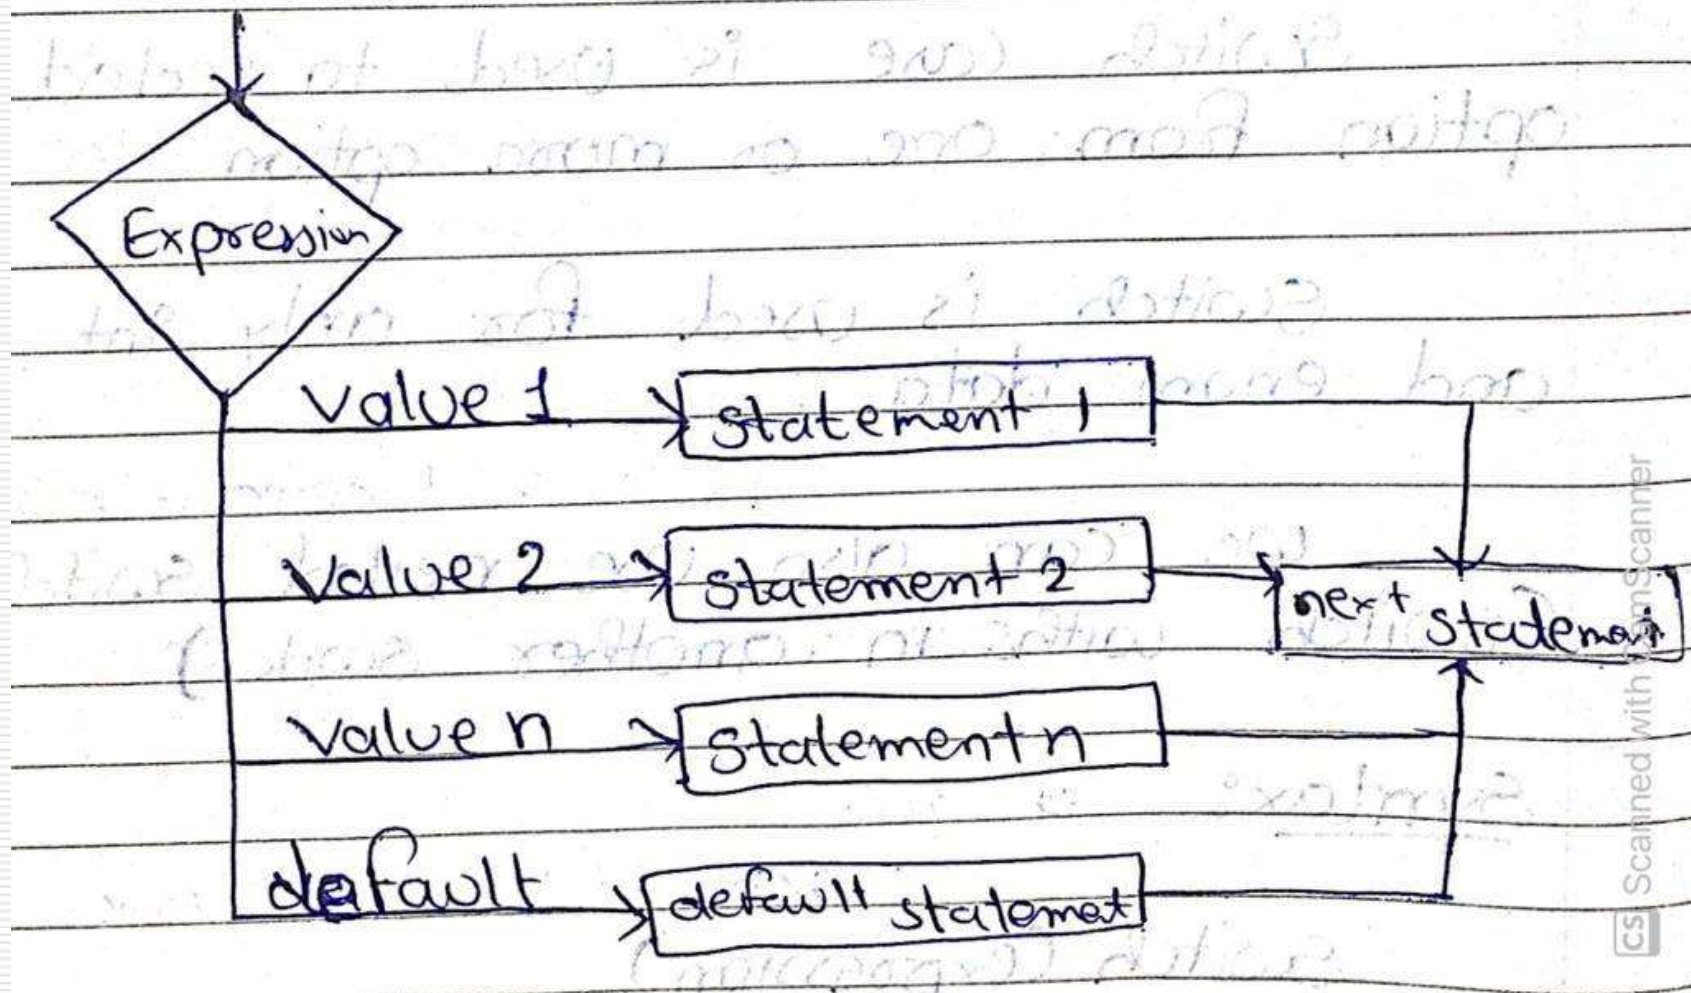 Expression
Value 1
statement 1
Value 2
statement 2
next statement
Value n
statement n
default
default statemet
CS Scanned with CamScanner